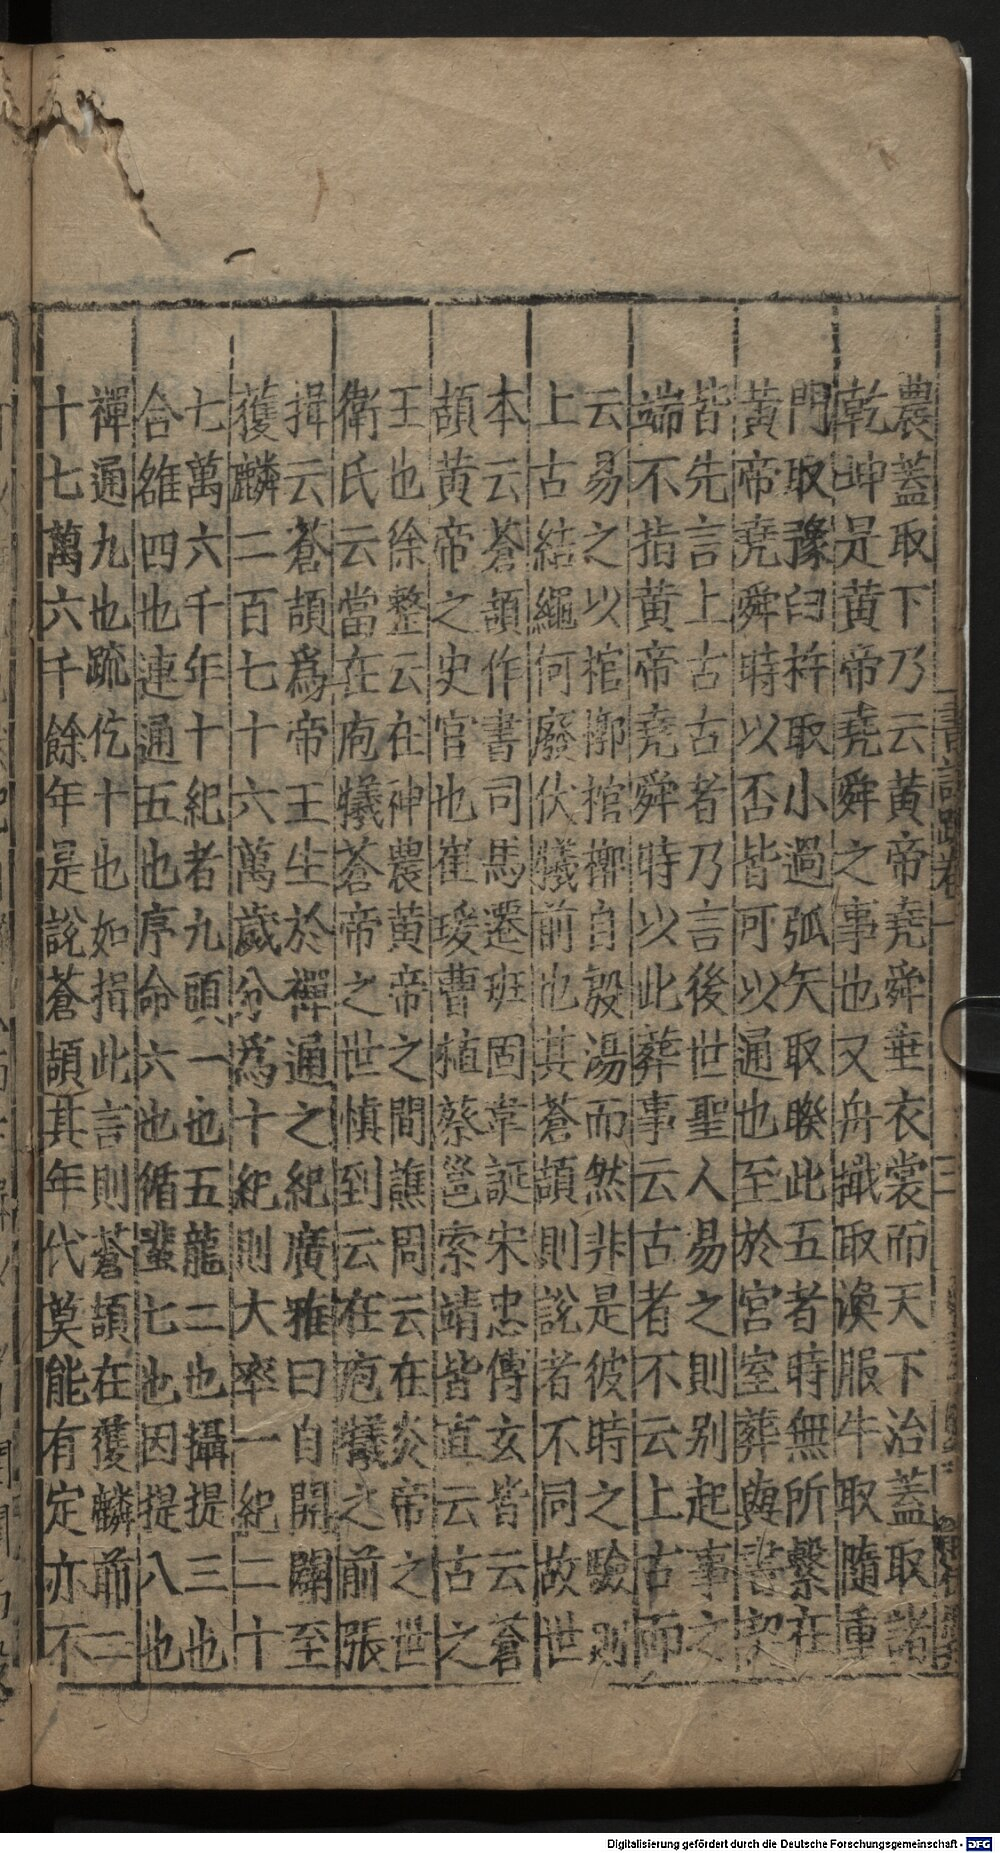 農蓋取下乃云黃帝堯舜垂衣裳而天下治蓋取諸
乾坤是黃帝堯舜之事也又舟檝取渙服牛取隨重
門取豫臼杵取小過弧矢取睽此五者時無所繫在
黃帝堯舜時以否皆可以通也至於宮室葬與書契
皆先言上古古者乃言後世聖人易之則別起事之
端不指黃帝堯舜時以此葬事云古者不云上古而
云易之以棺槨棺槨自殷湯而然非是彼時之驗則
上古結繩何廢伏犧前也其蒼頡則說者不同故世
本云蒼頡作書司馬遷班固韋誕宋忠傅玄皆云蒼
頡黃帝之史官也崔瑗曹植蔡邕索靖皆直云古之
王也徐整云在神農黃帝之間譙周云在炎帝之世
衛氏云當在庖犧蒼帝之世慎到云在庖犧之前張
揖云蒼頡爲帝王生於禪通之紀廣雅曰自開闢至
獲麟二百七十六萬歲分爲十紀則大率一紀二十
七萬六千年十紀者九頭一也五龍二也攝提三也
合雒四也連通五也序命六也循蜚七也因提八也
禪通九也䟽仡十也如揖此言則蒼頡在獲麟前二
十七萬六千餘年是說蒼頡其年代莫能有定亦不
書註䟽卷一
三
Digitalisierung gefördert durch die Deutsche Forschungsgemeinschaft - DFG